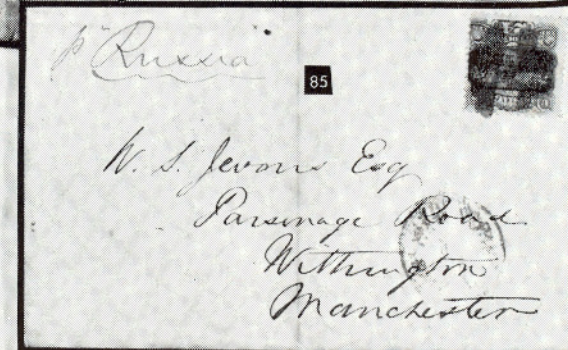 pr "Russia"
85
W. S. Jevons Esq
Parsonage Road
Withington
Manchester